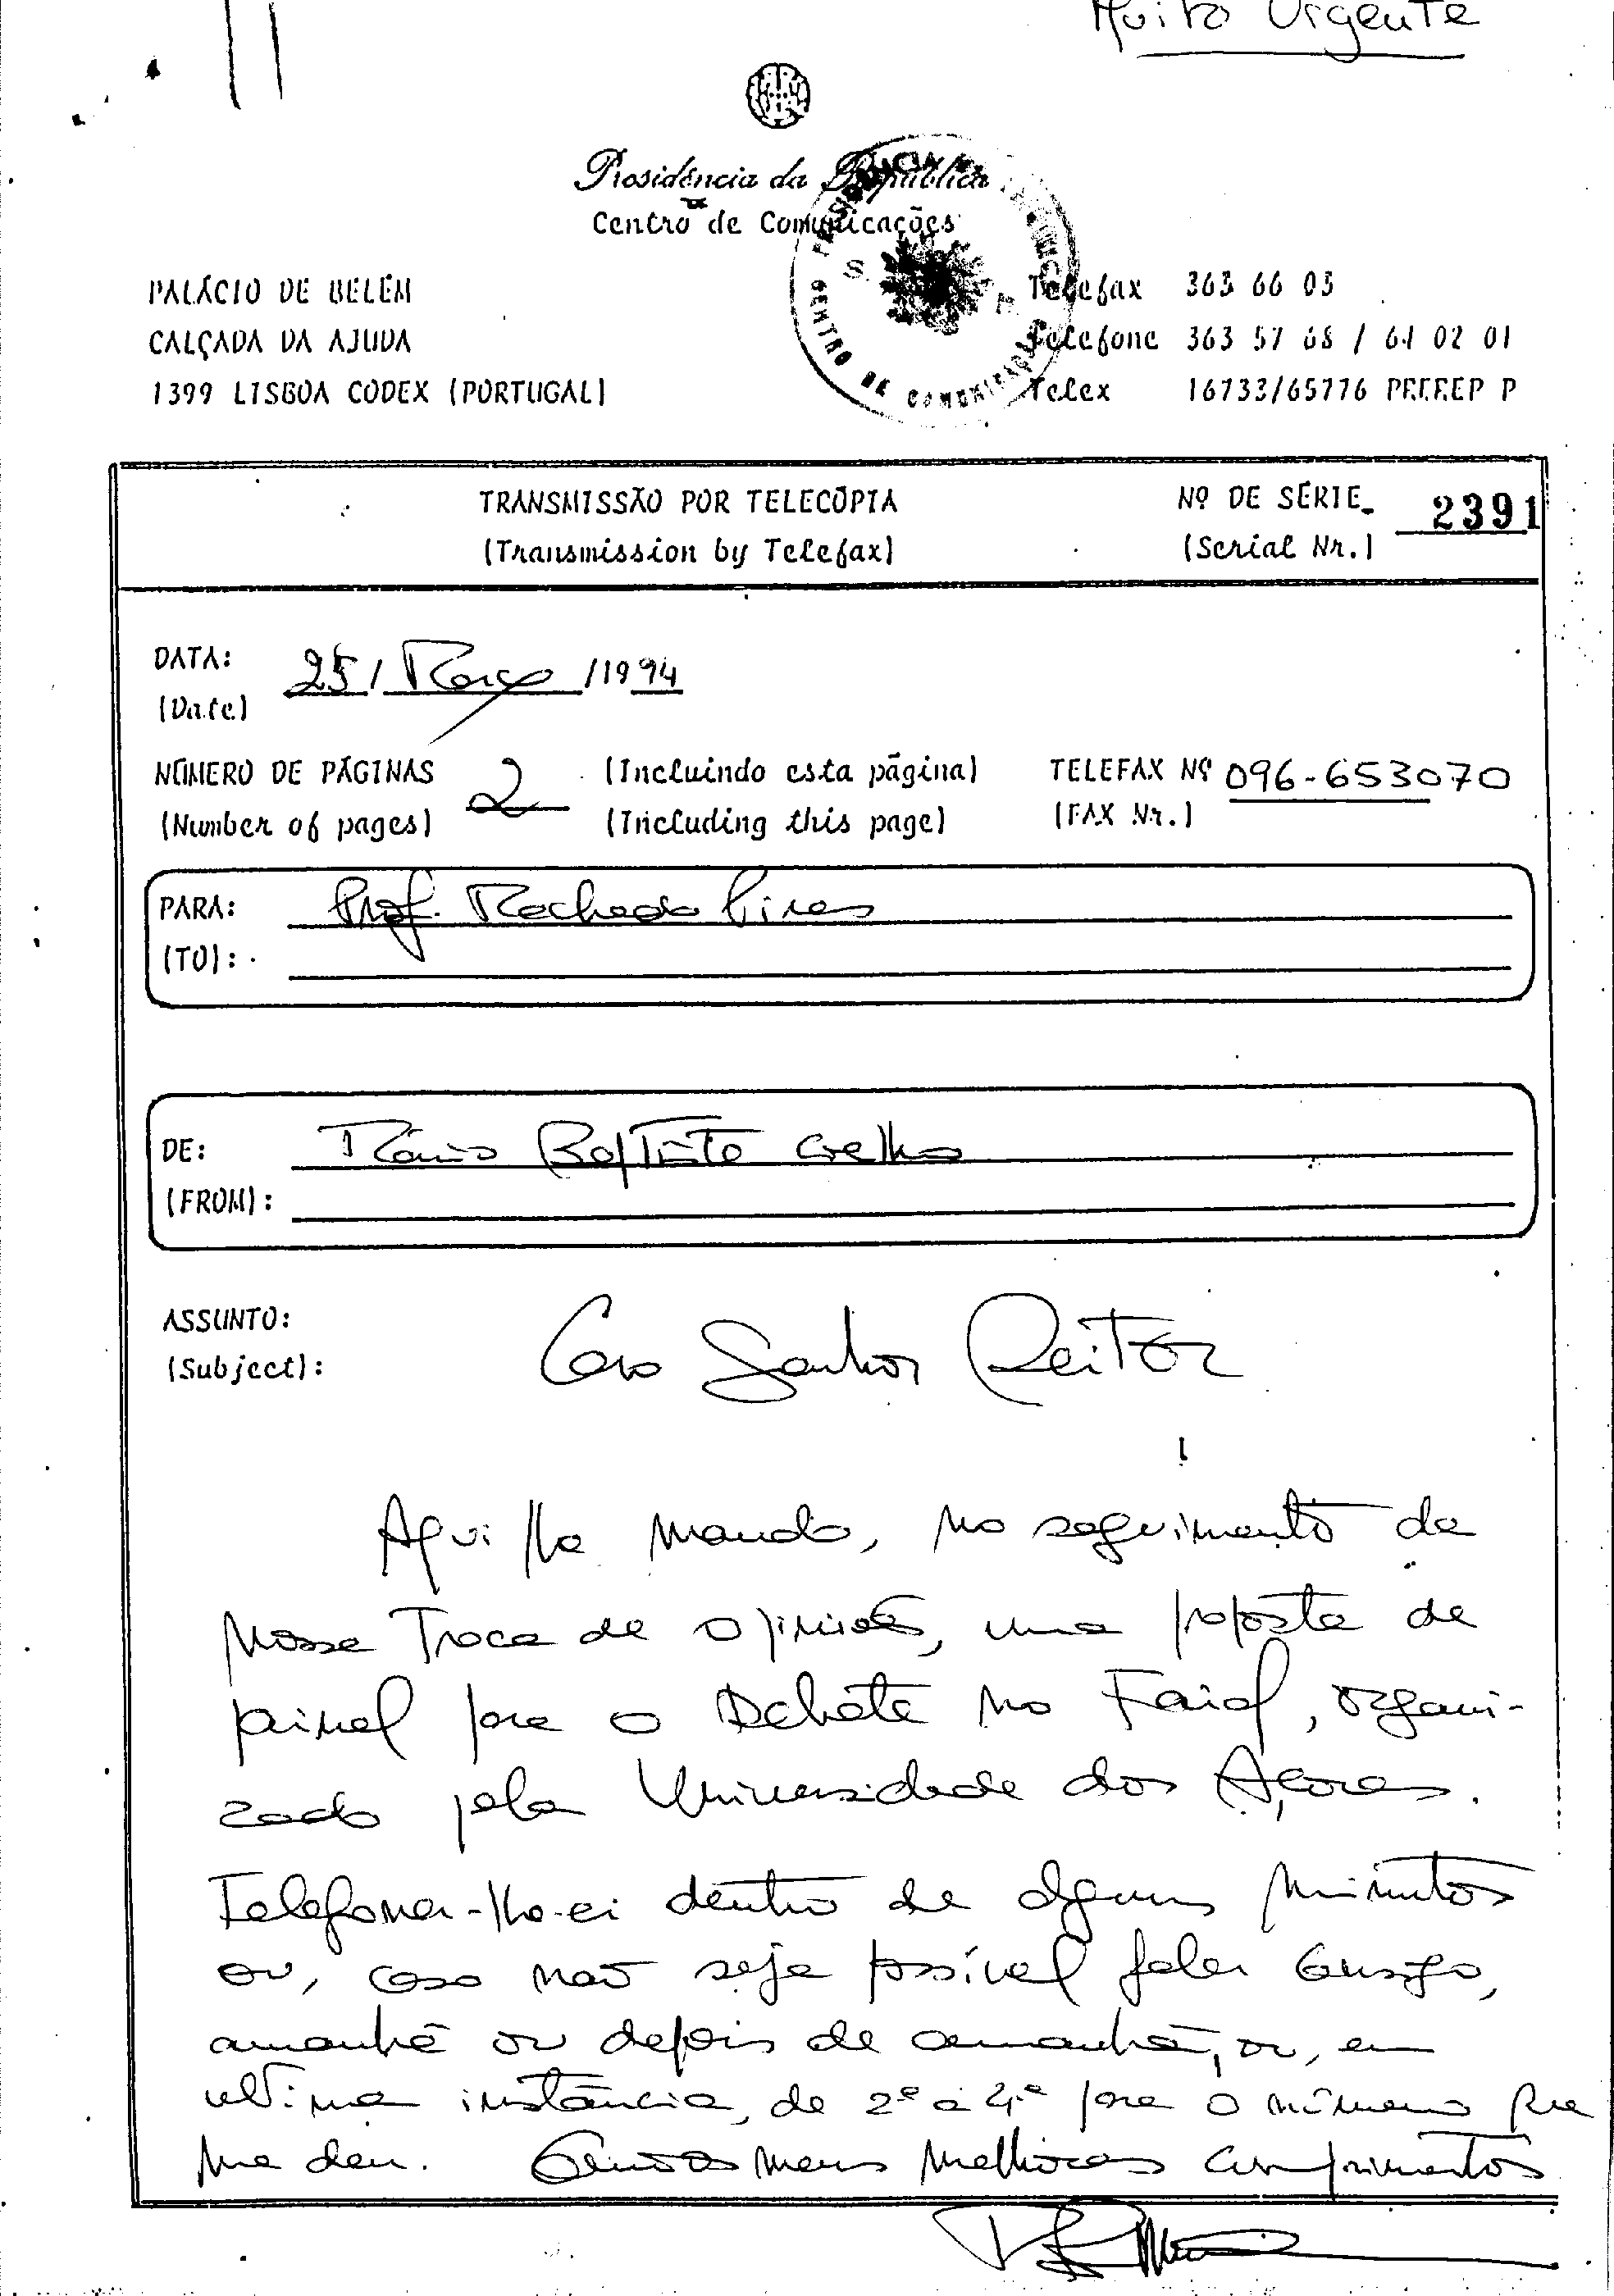 Muito Urgente
Presidência da República
Centro de Comunicações
PRESIDÊNCIA
CENTRO DE COMUNICAÇÕES
S. R.
PALÁCIO DE BELÉM
CALÇADA DA AJUDA
1399 LISBOA CODEX (PORTUGAL)
Telefax 363 66 03
Telefone 363 57 68 / 61 02 01
Telex 16733/65776 PREREP P
TRANSMISSÃO POR TELECÓPIA
(Transmission by Telefax)
Nº DE SÉRIE 2391
(Serial Nr.)
DATA: 25/Março/1994
(Date)
NÚMERO DE PÁGINAS 2 (Incluindo esta página) TELEFAX Nº 096-653070
(Number of pages) (Including this page) (FAX Nr.)
PARA: Prof. Machado Pires
(TO):
DE: Mário Baptista Coelho
(FROM):
ASSUNTO: Caro Senhor Reitor
(Subject):
Aqui lhe mando, no seguimento da
nossa troca de opiniões, uma proposta de
painel para o Debate no Faial, organi-
zado pela Universidade dos Açores.
Telefonar-lhe-ei dentro de alguns minutos
ou, caso não seja possível falar consigo,
amanhã ou depois de amanhã, ou, em
ultima instância, de 2ª a 4ª para o número que
me deu. Com os meus melhores cumprimentos